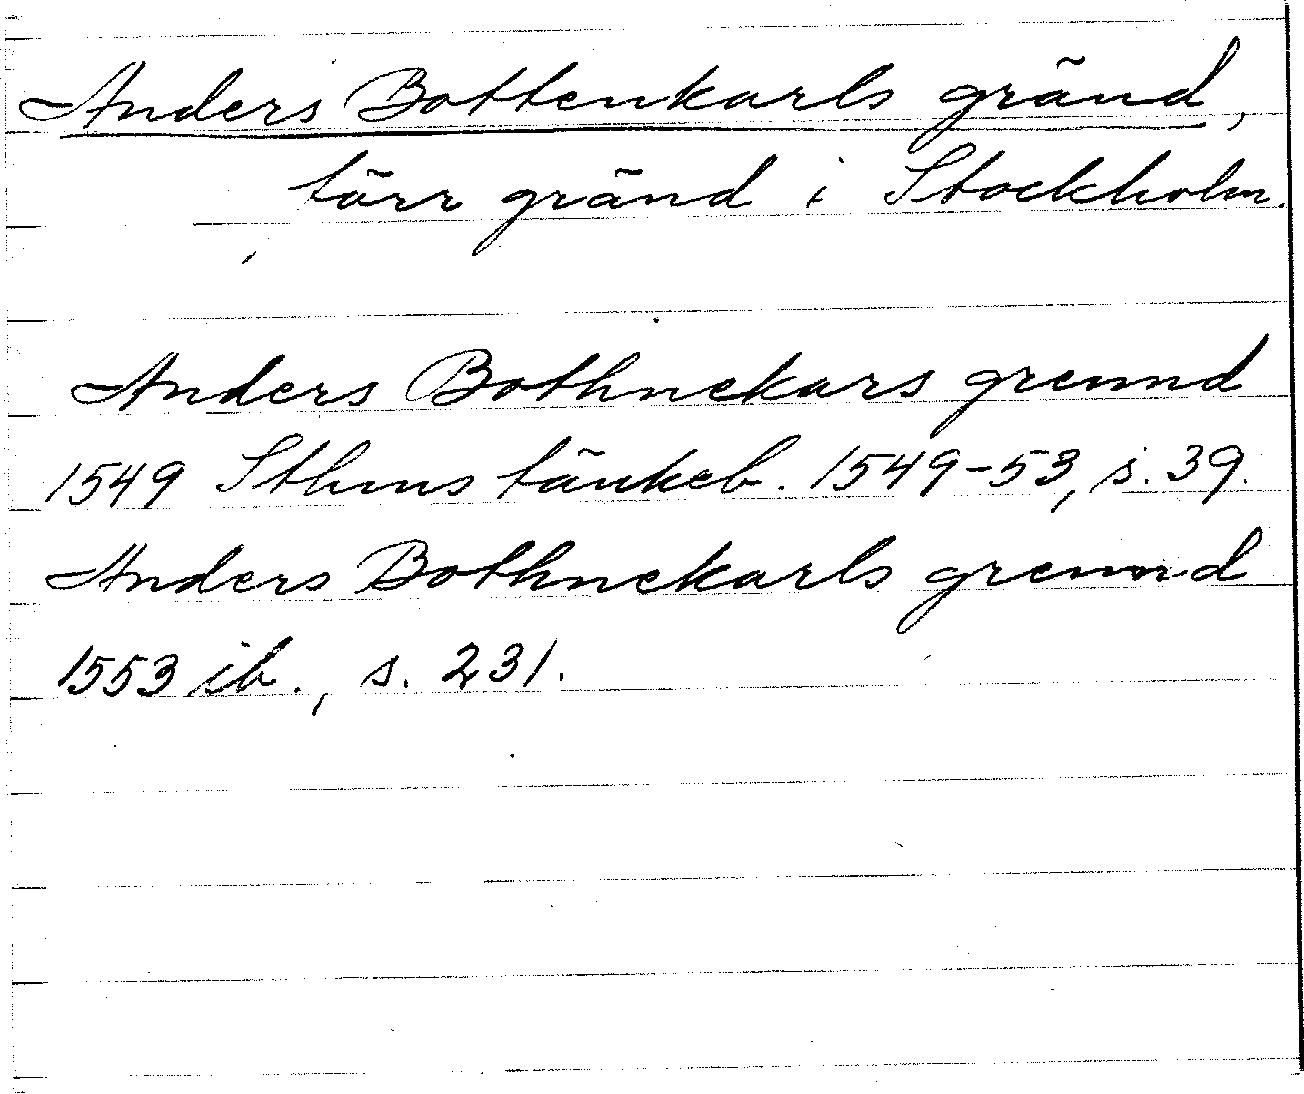 Anders Bottenkarls gränd,
förr gränd i Stockholm.
Anders Bothnekars grennd
1549 Sthms tänkeb. 1549-53, s. 39.
Anders Bothnekarls grennd
1553 ib., s. 231.